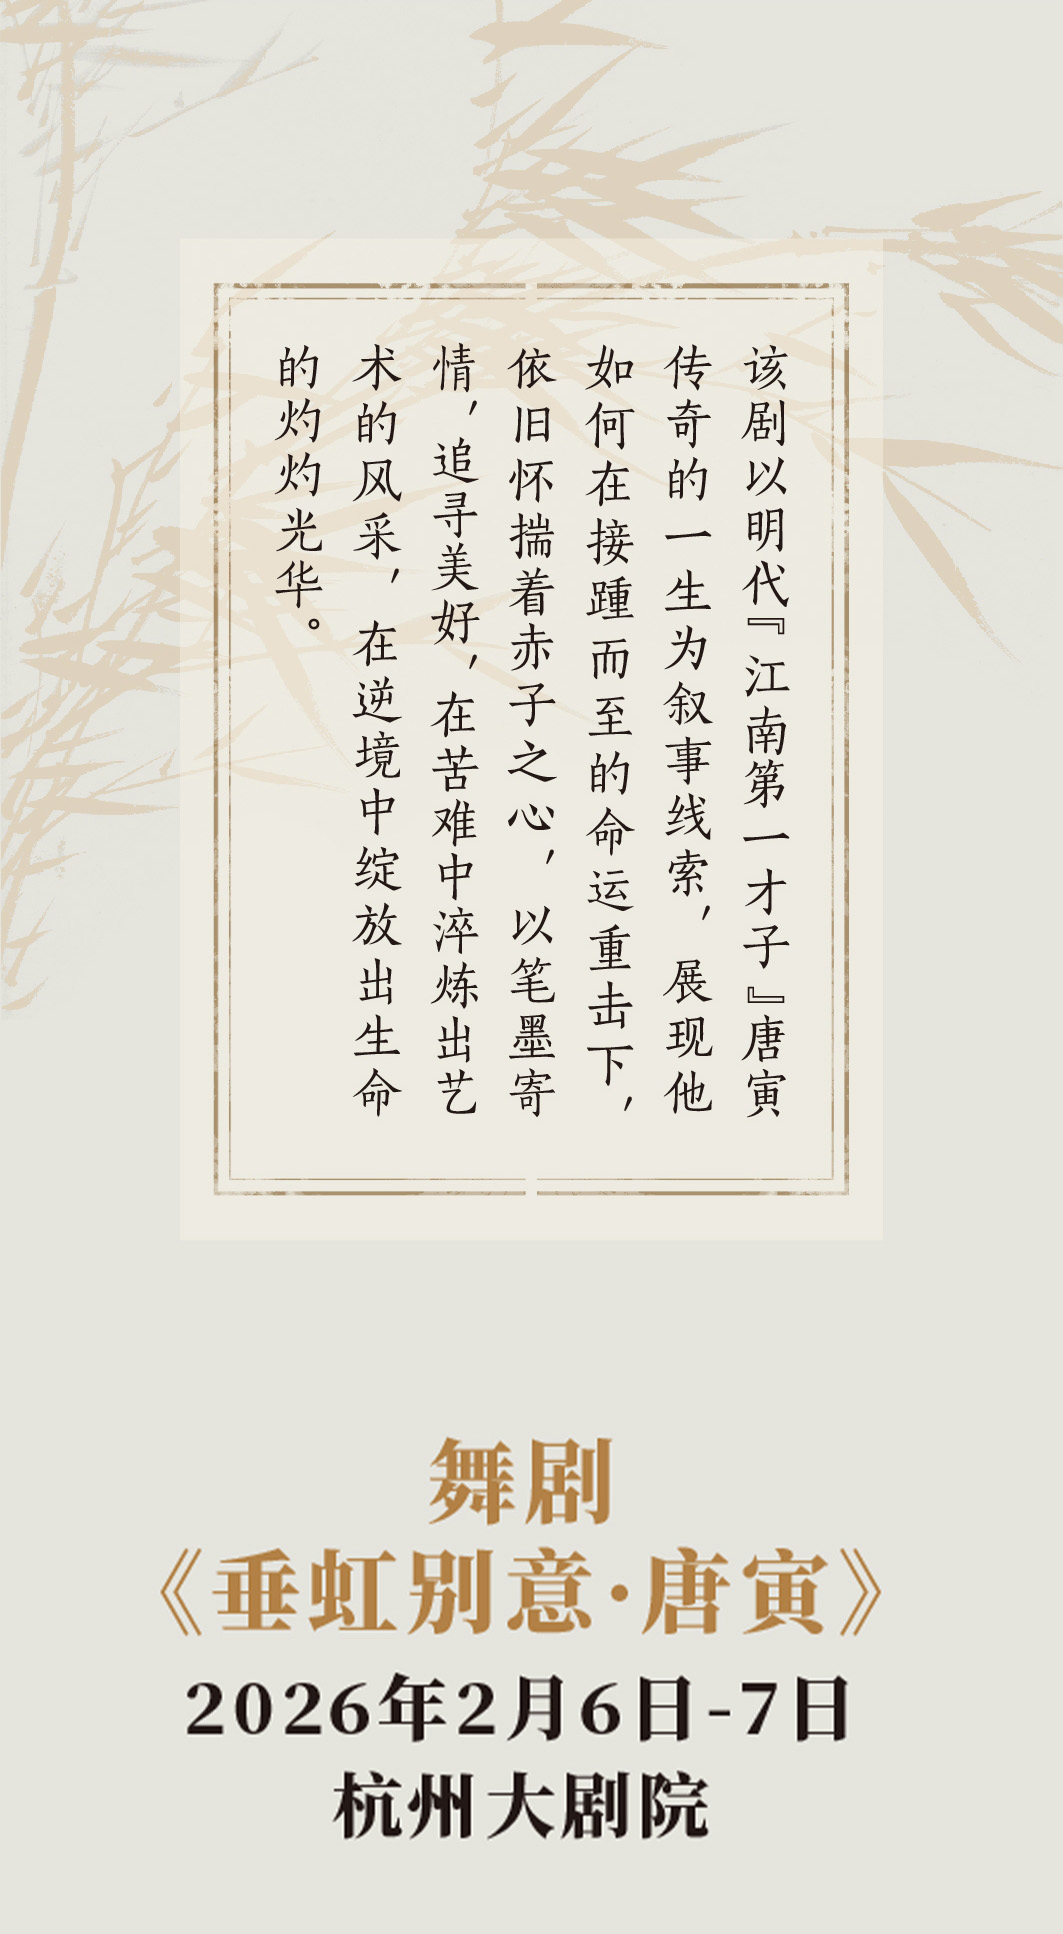 该剧以明代『江南第一才子』唐寅
传奇的一生为叙事线索，展现他
如何在接踵而至的命运重击下，
依旧怀揣着赤子之心，以笔墨寄
情，追寻美好，在苦难中淬炼出艺
术的风采，在逆境中绽放出生命
的灼灼光华。
舞剧
《垂虹别意·唐寅》
2026年2月6日-7日
杭州大剧院